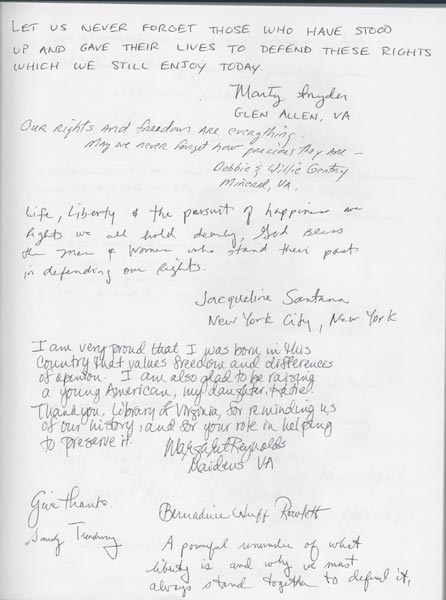 LET US NEVER FORGET THOSE WHO HAVE STOOD
UP AND GAVE THEIR LIVES TO DEFEND THESE RIGHTS
WHICH WE STILL ENJOY TODAY.
Marty Snyder
GLEN ALLEN, VA
Our rights and freedom are everything.
May we never forget how precious they are –
Debbie & Willie Gentry
Mineral, VA.
Life, Liberty & the pursuit of happiness are
Rights we all hold dearly, God Bless
the Men & Women who stand their posts
in defending our Rights.
Jacqueline Santana
New York City, New York
I am very proud that I was born in this
country that values freedom and differences
of opinion. I am also glad to be raising
a young American, my daughter, Katie.
Thank you, Library of Virginia, for reminding us
of our history, and for your role in helping
to preserve it.
Margaret Reynolds
Maidens VA
Give thanks.
Sandy
Bernadine Huff Rowlett
A powerful reminder of what
liberty is and why we must
always stand together to defend it,